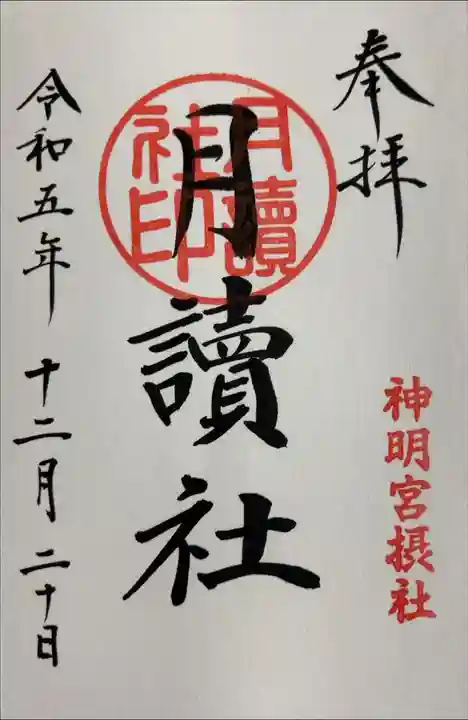 奉拝
神明宮摂社
月讀社
月讀
社印
令和五年 十二月 二十日